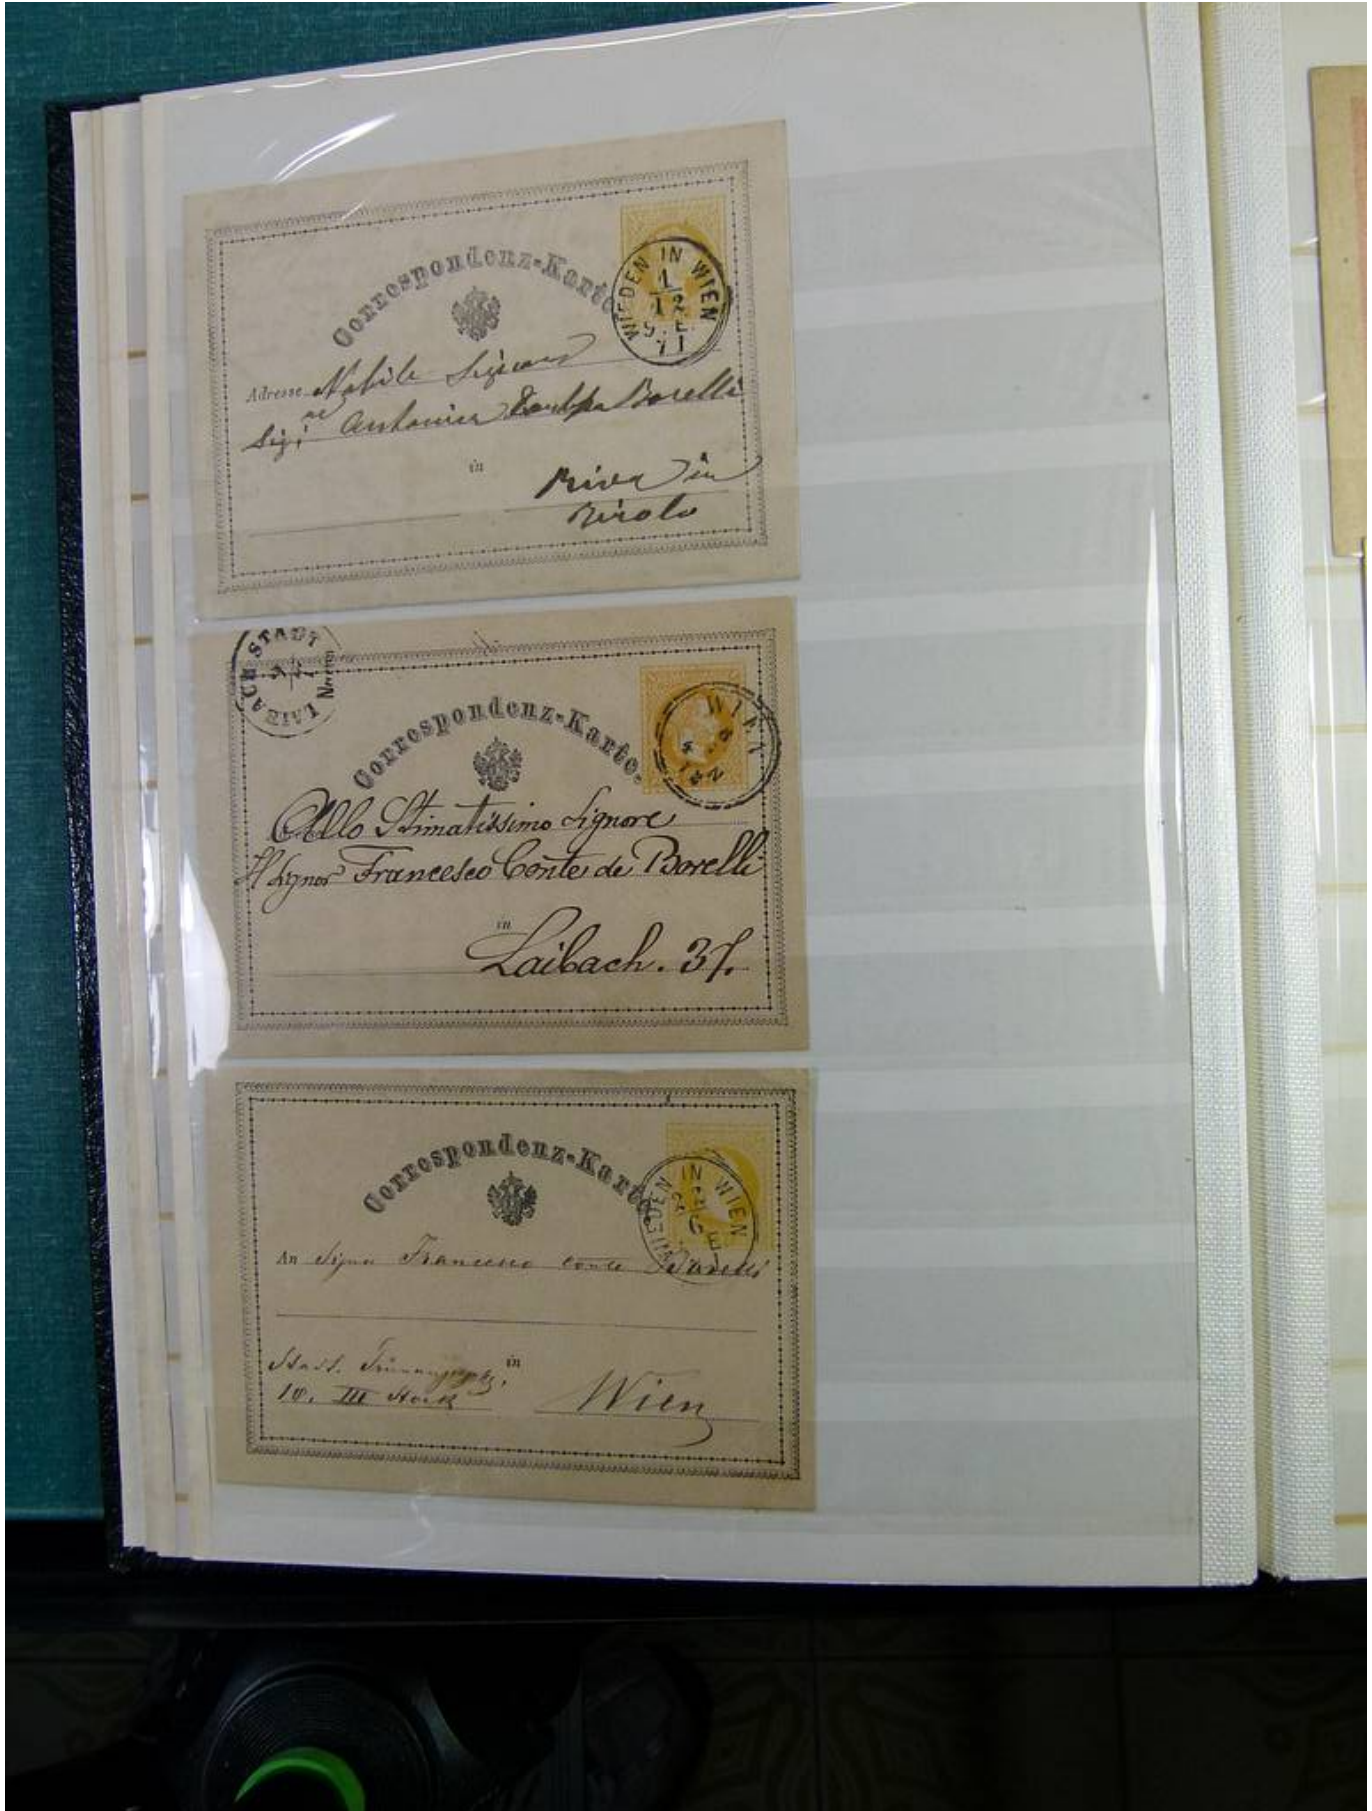 Correspondenz-Karte
WIEDEN IN WIEN
1
12
71
Adresse Nobile Signora
Antonia Borelli
in
Riva in
Tirolo
LAIBACH STADT
Correspondenz-Karte.
WIEN
Allo Stimatissimo Signore
Il Signor Francesco Conte de Borelli
in
Laibach. 37.
Correspondenz-Karte
WIEDEN IN WIEN
An Signor Francesco conte Borelli
Stadt.
in
10. III Stock
Wien